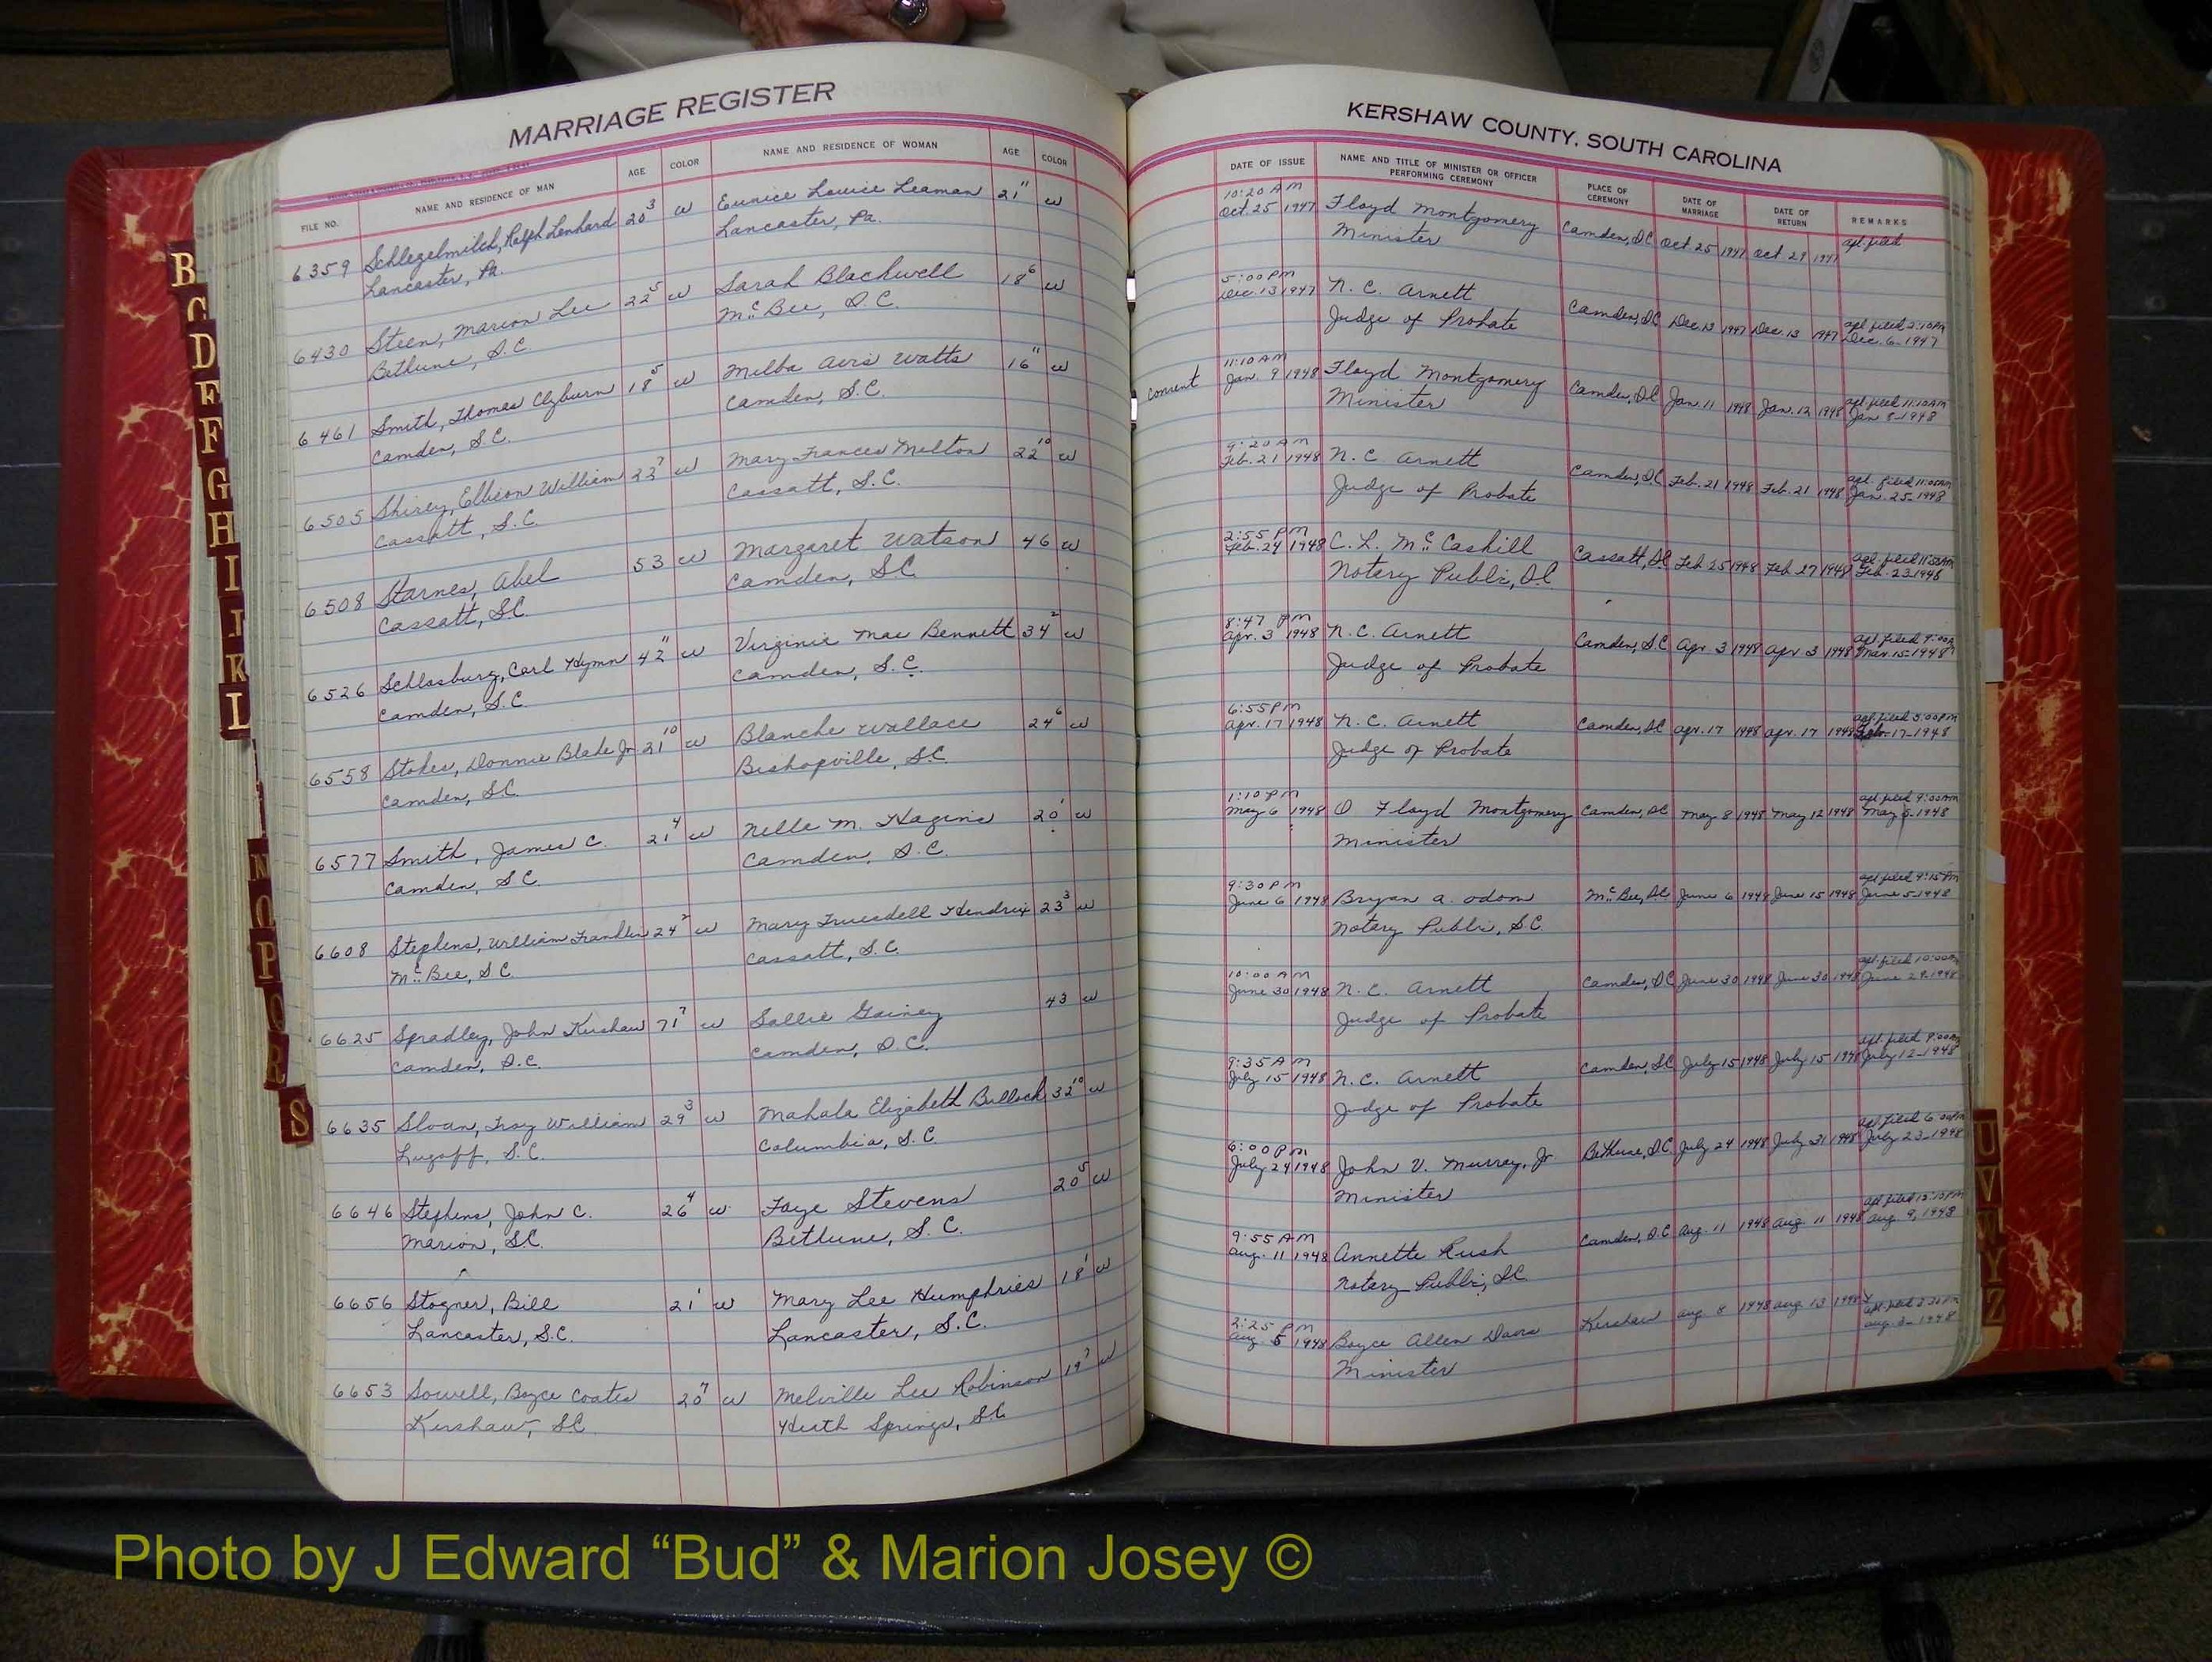 MARRIAGE REGISTER
FILE NO. NAME AND RESIDENCE OF MAN AGE COLOR NAME AND RESIDENCE OF WOMAN AGE COLOR
6359 Schlegelmilch, Ralph Lenhard 20³ w Eunice Louise Leaman 21¹¹ w
Lancaster, Pa. Lancaster, Pa.
6430 Steen, Marion Lee 22⁵ w Sarah Blackwell 18⁶ w
Bethune, S.C. McBee, S.C.
6461 Smith, Thomas Clyburn 18⁵ w Melba Avis Watts 16¹¹ w
Camden, S.C. Camden, S.C.
6505 Shirey, Ellison William 22⁷ w Mary Frances Melton 22¹⁰ w
Cassatt, S.C. Cassatt, S.C.
6508 Starnes, Abel 53 w Margaret Watson 46 w
Cassatt, S.C. Camden, S.C.
6526 Schlosburg, Carl Hymn 42¹¹ w Virginia Mae Bennett 34² w
Camden, S.C. Camden, S.C.
6558 Stokes, Donnie Blake Jr. 21¹⁰ w Blanche Wallace 24⁶ w
Camden, S.C. Bishopville, S.C.
6577 Smith, James C. 21⁴ w Nelle M. Hagins 20¹ w
Camden, S.C. Camden, S.C.
6608 Stephens, William Franklin 24² w Mary Truesdell Hendrix 23³ w
McBee, S.C. Cassatt, S.C.
6625 Spradley, John Kershaw 71⁷ w Sallie Gainey 43 w
Camden, S.C. Camden, S.C.
6635 Sloan, Troy William 29³ w Mahala Elizabeth Bullock 32¹⁰ w
Lugoff, S.C. Columbia, S.C.
6646 Stephens, John C. 26⁴ w Faye Stevens 20⁵ w
Marion, S.C. Bethune, S.C.
6656 Stogner, Bill 21¹ w Mary Lee Humphries 18¹ w
Lancaster, S.C. Lancaster, S.C.
6653 Sowell, Boyce Coates 20⁷ w Melville Lee Robinson 19⁷ w
Kershaw, S.C. Heath Springs, S.C.
KERSHAW COUNTY, SOUTH CAROLINA
DATE OF ISSUE NAME AND TITLE OF MINISTER OR OFFICER PERFORMING CEREMONY PLACE OF CEREMONY DATE OF MARRIAGE DATE OF RETURN REMARKS
10:20 AM
Oct. 25 1947 Floyd Montgomery Camden, S.C. Oct. 25 1947 Oct. 29 1947 apl. filed
Minister
5:00 PM
Dec. 13 1947 N. C. Arnett Camden, S.C. Dec. 13 1947 Dec. 13 1947 apl. filed 2:10 PM
Judge of Probate Dec. 6-1947
11:10 AM
consent Jan. 9 1948 Floyd Montgomery Camden, S.C. Jan. 11 1948 Jan. 12 1948 apl. filed 11:10 AM
Minister Jan. 8-1948
9:20 AM
Feb. 21 1948 N. C. Arnett Camden, S.C. Feb. 21 1948 Feb. 21 1948 apl. filed 11:05 AM
Judge of Probate Jan. 25-1948
2:55 PM
Feb. 24 1948 C. L. McCaskill Cassatt, S.C. Feb. 25 1948 Feb. 27 1948 apl. filed
Notary Public, S.C. Feb. 23-1948
8:47 PM
Apr. 3 1948 N. C. Arnett Camden, S.C. Apr. 3 1948 Apr. 3 1948 apl. filed 9:00
Judge of Probate Mar. 15-1948
6:55 PM
Apr. 17 1948 N. C. Arnett Camden, S.C. Apr. 17 1948 Apr. 17 1948 apl. filed 5:00 PM
Judge of Probate 17-1948
1:10 PM
May 6 1948 O Floyd Montgomery Camden, S.C. May 8 1948 May 12 1948 apl. filed 9:00 AM
Minister May 5-1948
9:30 PM
June 6 1948 Bryan A. Odom McBee, S.C. June 6 1948 June 15 1948 apl. filed 9:15 PM
Notary Public, S.C. June 5-1948
10:00 AM
June 30 1948 N. C. Arnett Camden, S.C. June 30 1948 June 30 1948 apl. filed 10:00 AM
Judge of Probate June 29-1948
9:35 AM
July 15 1948 N. C. Arnett Camden, S.C. July 15 1948 July 15 1948 apl. filed 9:00 AM
Judge of Probate July 12-1948
6:00 PM
July 24 1948 John V. Murray, Jr. Bethune, S.C. July 24 1948 July 31 1948 apl. filed 6:00 PM
Minister July 23-1948
9:55 AM
Aug. 11 1948 Annette Rush Camden, S.C. Aug. 11 1948 Aug. 11 1948 apl. filed
Notary Public, S.C. Aug. 9, 1948
2:25 PM
Aug. 5 1948 Boyce Allen Davis Kershaw Aug. 8 1948 Aug. 13 1948 apl. filed
Minister Aug. 3-1948
B
C
D
E
F
G
H
I
J
K
L
N
O
P
Q
R
S
U
V
W
Y
Z
Photo by J Edward “Bud” & Marion Josey ©